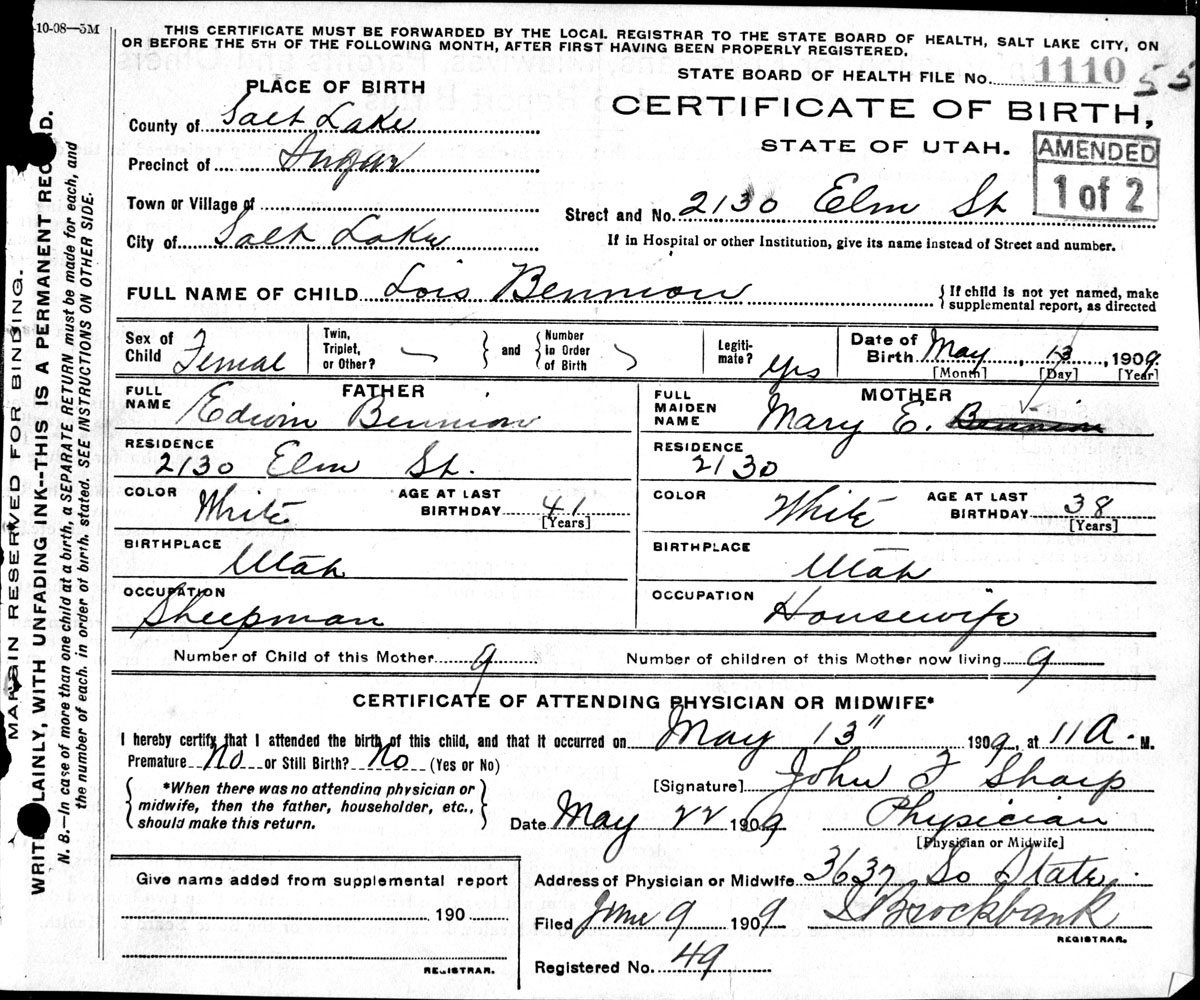 10-08—5M
THIS CERTIFICATE MUST BE FORWARDED BY THE LOCAL REGISTRAR TO THE STATE BOARD OF HEALTH, SALT LAKE CITY, ON
OR BEFORE THE 5TH OF THE FOLLOWING MONTH, AFTER FIRST HAVING BEEN PROPERLY REGISTERED.
STATE BOARD OF HEALTH FILE No. 1110 55
PLACE OF BIRTH
CERTIFICATE OF BIRTH,
STATE OF UTAH.
AMENDED
1 of 2
County of Salt Lake
Precinct of Sugar
Town or Village of
City of Salt Lake
Street and No. 2130 Elm St
If in Hospital or other Institution, give its name instead of Street and number.
FULL NAME OF CHILD Lois Bennion
If child is not yet named, make
supplemental report, as directed
Sex of
Child Femal
Twin,
Triplet,
or Other?
and
Number
in Order
of Birth
Legiti-
mate? Yes
Date of
Birth May, 13, 1909
[Month] [Day] [Year]
FATHER
FULL
NAME Edwin Bennion
RESIDENCE
2130 Elm St.
COLOR White
AGE AT LAST
BIRTHDAY 41
[Years]
BIRTHPLACE
Utah
OCCUPATION
Sheepman
MOTHER
FULL
MAIDEN
NAME Mary E. Bennion
RESIDENCE
2130
COLOR White
AGE AT LAST
BIRTHDAY 38
[Years]
BIRTHPLACE
Utah
OCCUPATION
Housewife
Number of Child of this Mother 9
Number of children of this Mother now living 9
CERTIFICATE OF ATTENDING PHYSICIAN OR MIDWIFE*
I hereby certify that I attended the birth of this child, and that it occurred on May 13" 1909, at 11 A. M.
Premature No or Still Birth? No (Yes or No)
*When there was no attending physician or
midwife, then the father, householder, etc.,
should make this return.
[Signature] John F Sharp
Date May 22 1909
Physician
[Physician or Midwife]
Give name added from supplemental report
190
REGISTRAR.
Address of Physician or Midwife 3637 So State
Filed June 9 1909
Brockbank
REGISTRAR.
Registered No. 49
MARGIN RESERVED FOR BINDING.
WRITE PLAINLY, WITH UNFADING INK--THIS IS A PERMANENT RECORD.
N. B.—In case of more than one child at a birth, a SEPARATE RETURN must be made for each, and
the number of each, in order of birth, stated. SEE INSTRUCTIONS ON OTHER SIDE.